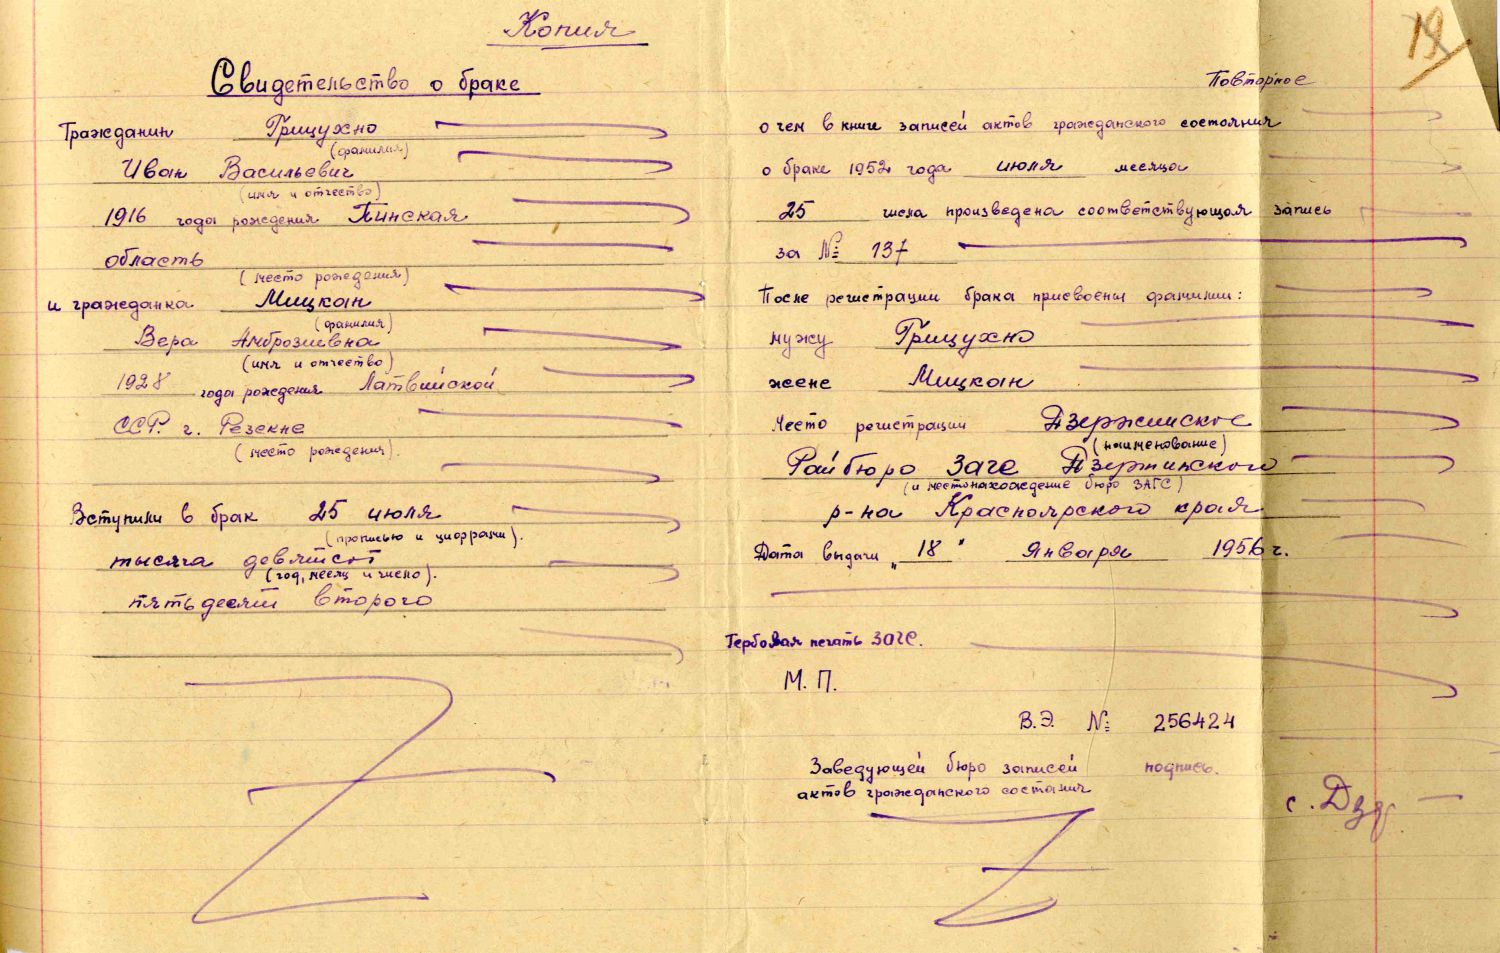 Копия
18
Свидетельство о браке
Гражданин Грицухно
(фамилия)
Иван Васильевич
(имя и отчество)
1916 года рождения Пинская
область
(место рождения)
и гражданка Мицкан
(фамилия)
Вера Амброзиевна
(имя и отчество)
1928 года рождения Латвийской
ССР. г. Резекне
(место рождения).
Вступили в брак 25 июля
(прописью и цифрами).
тысяча девятсот
(год, месяц и число).
пятьдесят второго
Повторное
о чем в книге записей актов гражданского состояния
о браке 1952 года июля месяца
25 числа произведена соответствующая запись
за № 137
После регистрации брака присвоены фамилии:
мужу Грицухно
жене Мицкан
Место регистрации Дзержинское
(наименование)
Райбюро Загс Дзержинского
(и местонахождение бюро ЗАГС)
р-на Красноярского края
Дата выдачи "18" Января 1956 г.
Гербовая печать ЗАГС.
М. П.
В.Э. № 256424
Заведующей бюро записей подпись.
актов гражданского состания
с. Дзе